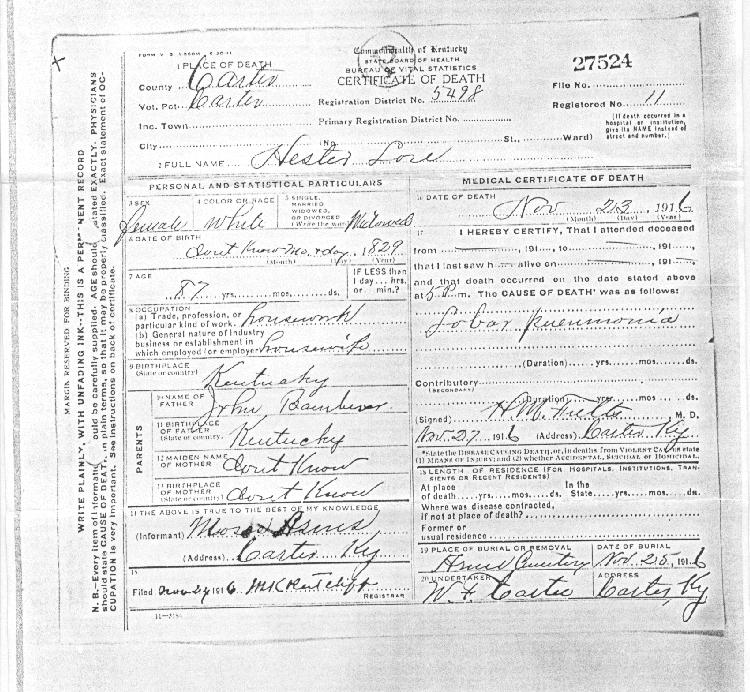 Commonwealth of Kentucky
STATE BOARD OF HEALTH
BUREAU OF VITAL STATISTICS
CERTIFICATE OF DEATH
1 PLACE OF DEATH
County Carter
Vot. Pct. Carter
Inc. Town
City
Registration District No. 5498
Primary Registration District No.
(No. St., Ward)
27524
File No.
Registered No. 11
(If death occurred in a hospital or institution, give its NAME instead of street and number.)
2 FULL NAME Hester Lore
PERSONAL AND STATISTICAL PARTICULARS
3 SEX
female
4 COLOR OR RACE
White
5 SINGLE, MARRIED WIDOWED, OR DIVORCED (Write the word)
Widowed
6 DATE OF BIRTH
Dont Know Mo. & day, 1829
(Month) (Day) (Year)
7 AGE
87 yrs. mos. ds.
IF LESS than 1 day... hrs. or min.?
8 OCCUPATION
(a) Trade, profession, or particular kind of work. housework
(b) General nature of industry
business or establishment in
which employed (or employer) housewife
9 BIRTHPLACE
(State or country) Kentucky
PARENTS
10 NAME OF FATHER John
11 BIRTHPLACE OF FATHER (State or country) Kentucky
12 MAIDEN NAME OF MOTHER Dont Know
13 BIRTHPLACE OF MOTHER Dont Know
14 THE ABOVE IS TRUE TO THE BEST OF MY KNOWLEDGE
(Informant)
(Address) Carter Ky
15
Filed Nov 1916
REGISTRAR
MEDICAL CERTIFICATE OF DEATH
16 DATE OF DEATH
Nov 23, 1916
(Month) (Day) (Year)
17 I HEREBY CERTIFY, That I attended deceased
from 191, to 191,
that I last saw h alive on 191,
and that death occurred on the date stated above
at m. The CAUSE OF DEATH* was as follows:
Lobar Pneumonia
(Duration) yrs. mos. ds.
Contributory
(SECONDARY)
(Duration) yrs. mos. ds.
(Signed) H. M. M. D.
Nov. 27 1916 (Address) Carter Ky
*State the DISEASE CAUSING DEATH, or, in deaths from VIOLENT CAUSES state
(1) MEANS OF INJURY; and (2) whether ACCIDENTAL, SUICIDAL or HOMICIDAL.
18 LENGTH OF RESIDENCE (FOR HOSPITALS, INSTITUTIONS, TRANSIENTS OR RECENT RESIDENTS)
At place of death yrs. mos. ds. In the State yrs. mos. ds.
Where was disease contracted,
if not at place of death?
Former or
usual residence
19 PLACE OF BURIAL OR REMOVAL
Cemetery
DATE OF BURIAL
Nov 25, 1916
20 UNDERTAKER
ADDRESS
Carter, Ky
MARGIN RESERVED FOR BINDING
WRITE PLAINLY, WITH UNFADING INK--THIS IS A PERMANENT RECORD
N. B.--Every item of information should be carefully supplied. AGE should be stated EXACTLY. PHYSICIANS
should state CAUSE OF DEATH in plain terms, so that it may be properly classified. Exact statement of OC-
CUPATION is very important. See instructions on back of certificate.